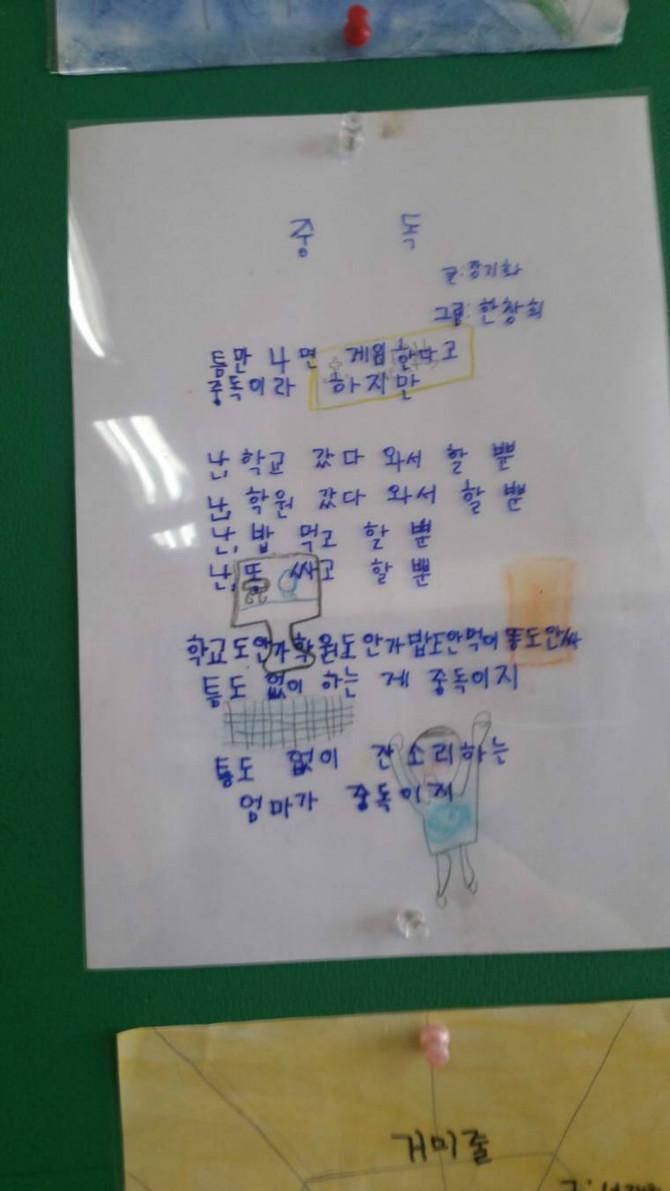 중 독
글:장기화
그림:한창희
틈만 나면 게임한다고
중독이라 하지만
난, 학교 갔다 와서 할 뿐
난, 학원 갔다 와서 할 뿐
난, 밥 먹고 할 뿐
난, 똥 싸고 할 뿐
학교도안가학원도안가밥도안먹이똥도안싸
틈도 없이 하는 게 중독이지
틈도 없이 잔소리하는
엄마가 중독이지
거미줄